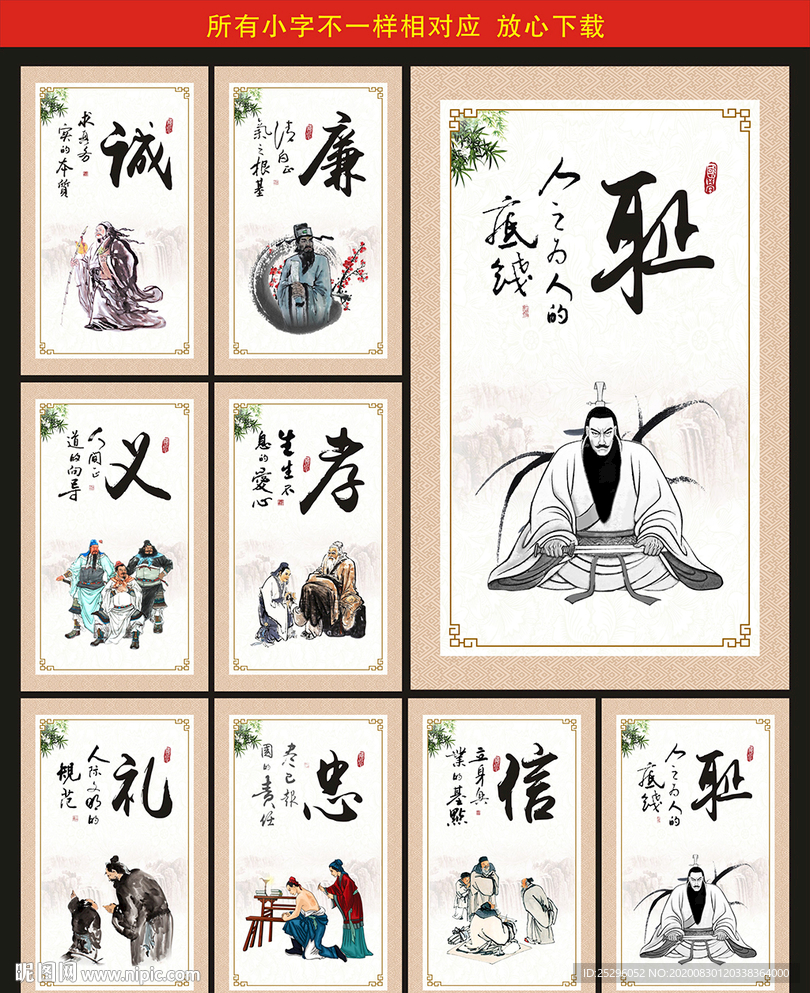 所有小字不一样相对应 放心下载
诚
求真务
实的本质
廉
清白正
气之根基
耻
人之为人的
底线
义
人间正
道的向导
孝
生生不
息的爱心
礼
人际文明的
规范
忠
尽已报
国的责任
信
立身兴
业的基点
耻
人之为人的
底线
昵图网 www.nipic.com
ID:25295052 NO:20200830120338364000